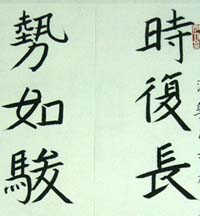 時復長
勢如駿